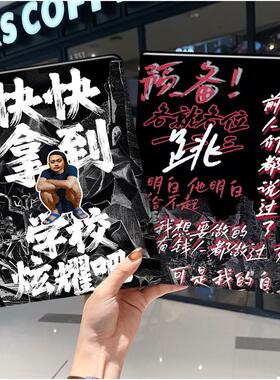 S COFF
快快
拿到
学校
炫耀吧
预备!
各就各位
一二三
跳
明白他明白
给不起
我想要做的
有钱人都做过
可是我的自
前人们都说过了